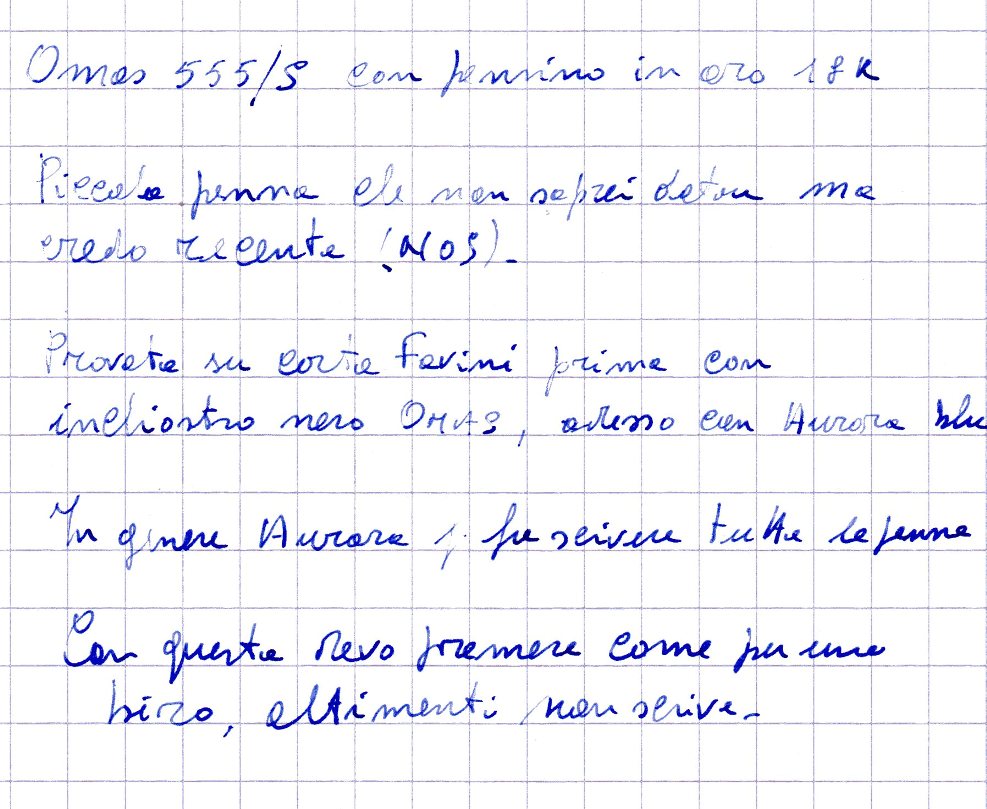 Omas 555/S con pennino in oro 18K
Piccola penna che non saprei datare ma
credo recente (NOS).
Provata su carta Favini prima con
inchiostro nero OMAS, adesso con Aurora blu
In genere Aurora fa scrivere tutte le penne
Con questa devo premere come per una
biro, altrimenti non scrive.